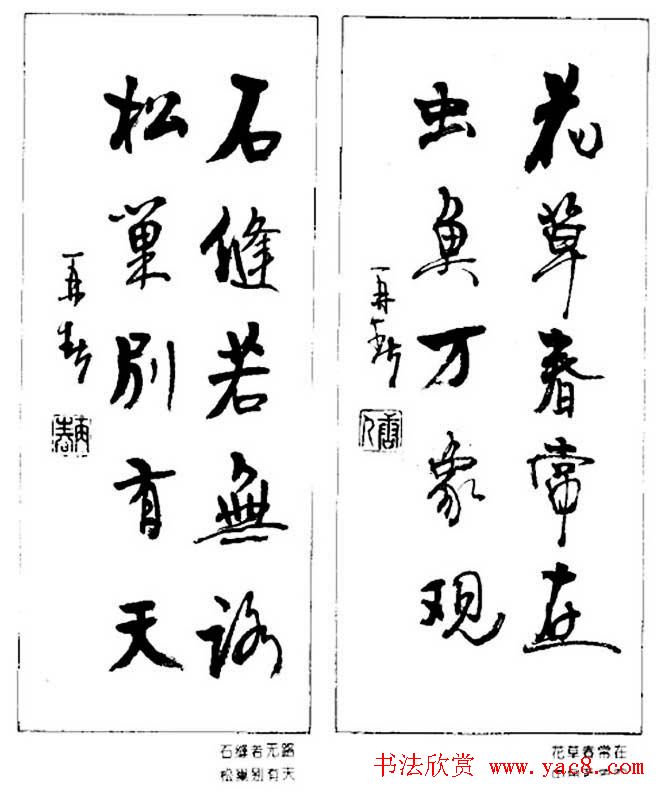 花草春常在
虫鱼万象观
再春
石缝若無路
松巢别有天
再春
再春
石缝若无路
松巢别有天
花草春常在
书法欣赏 www.yac8.com